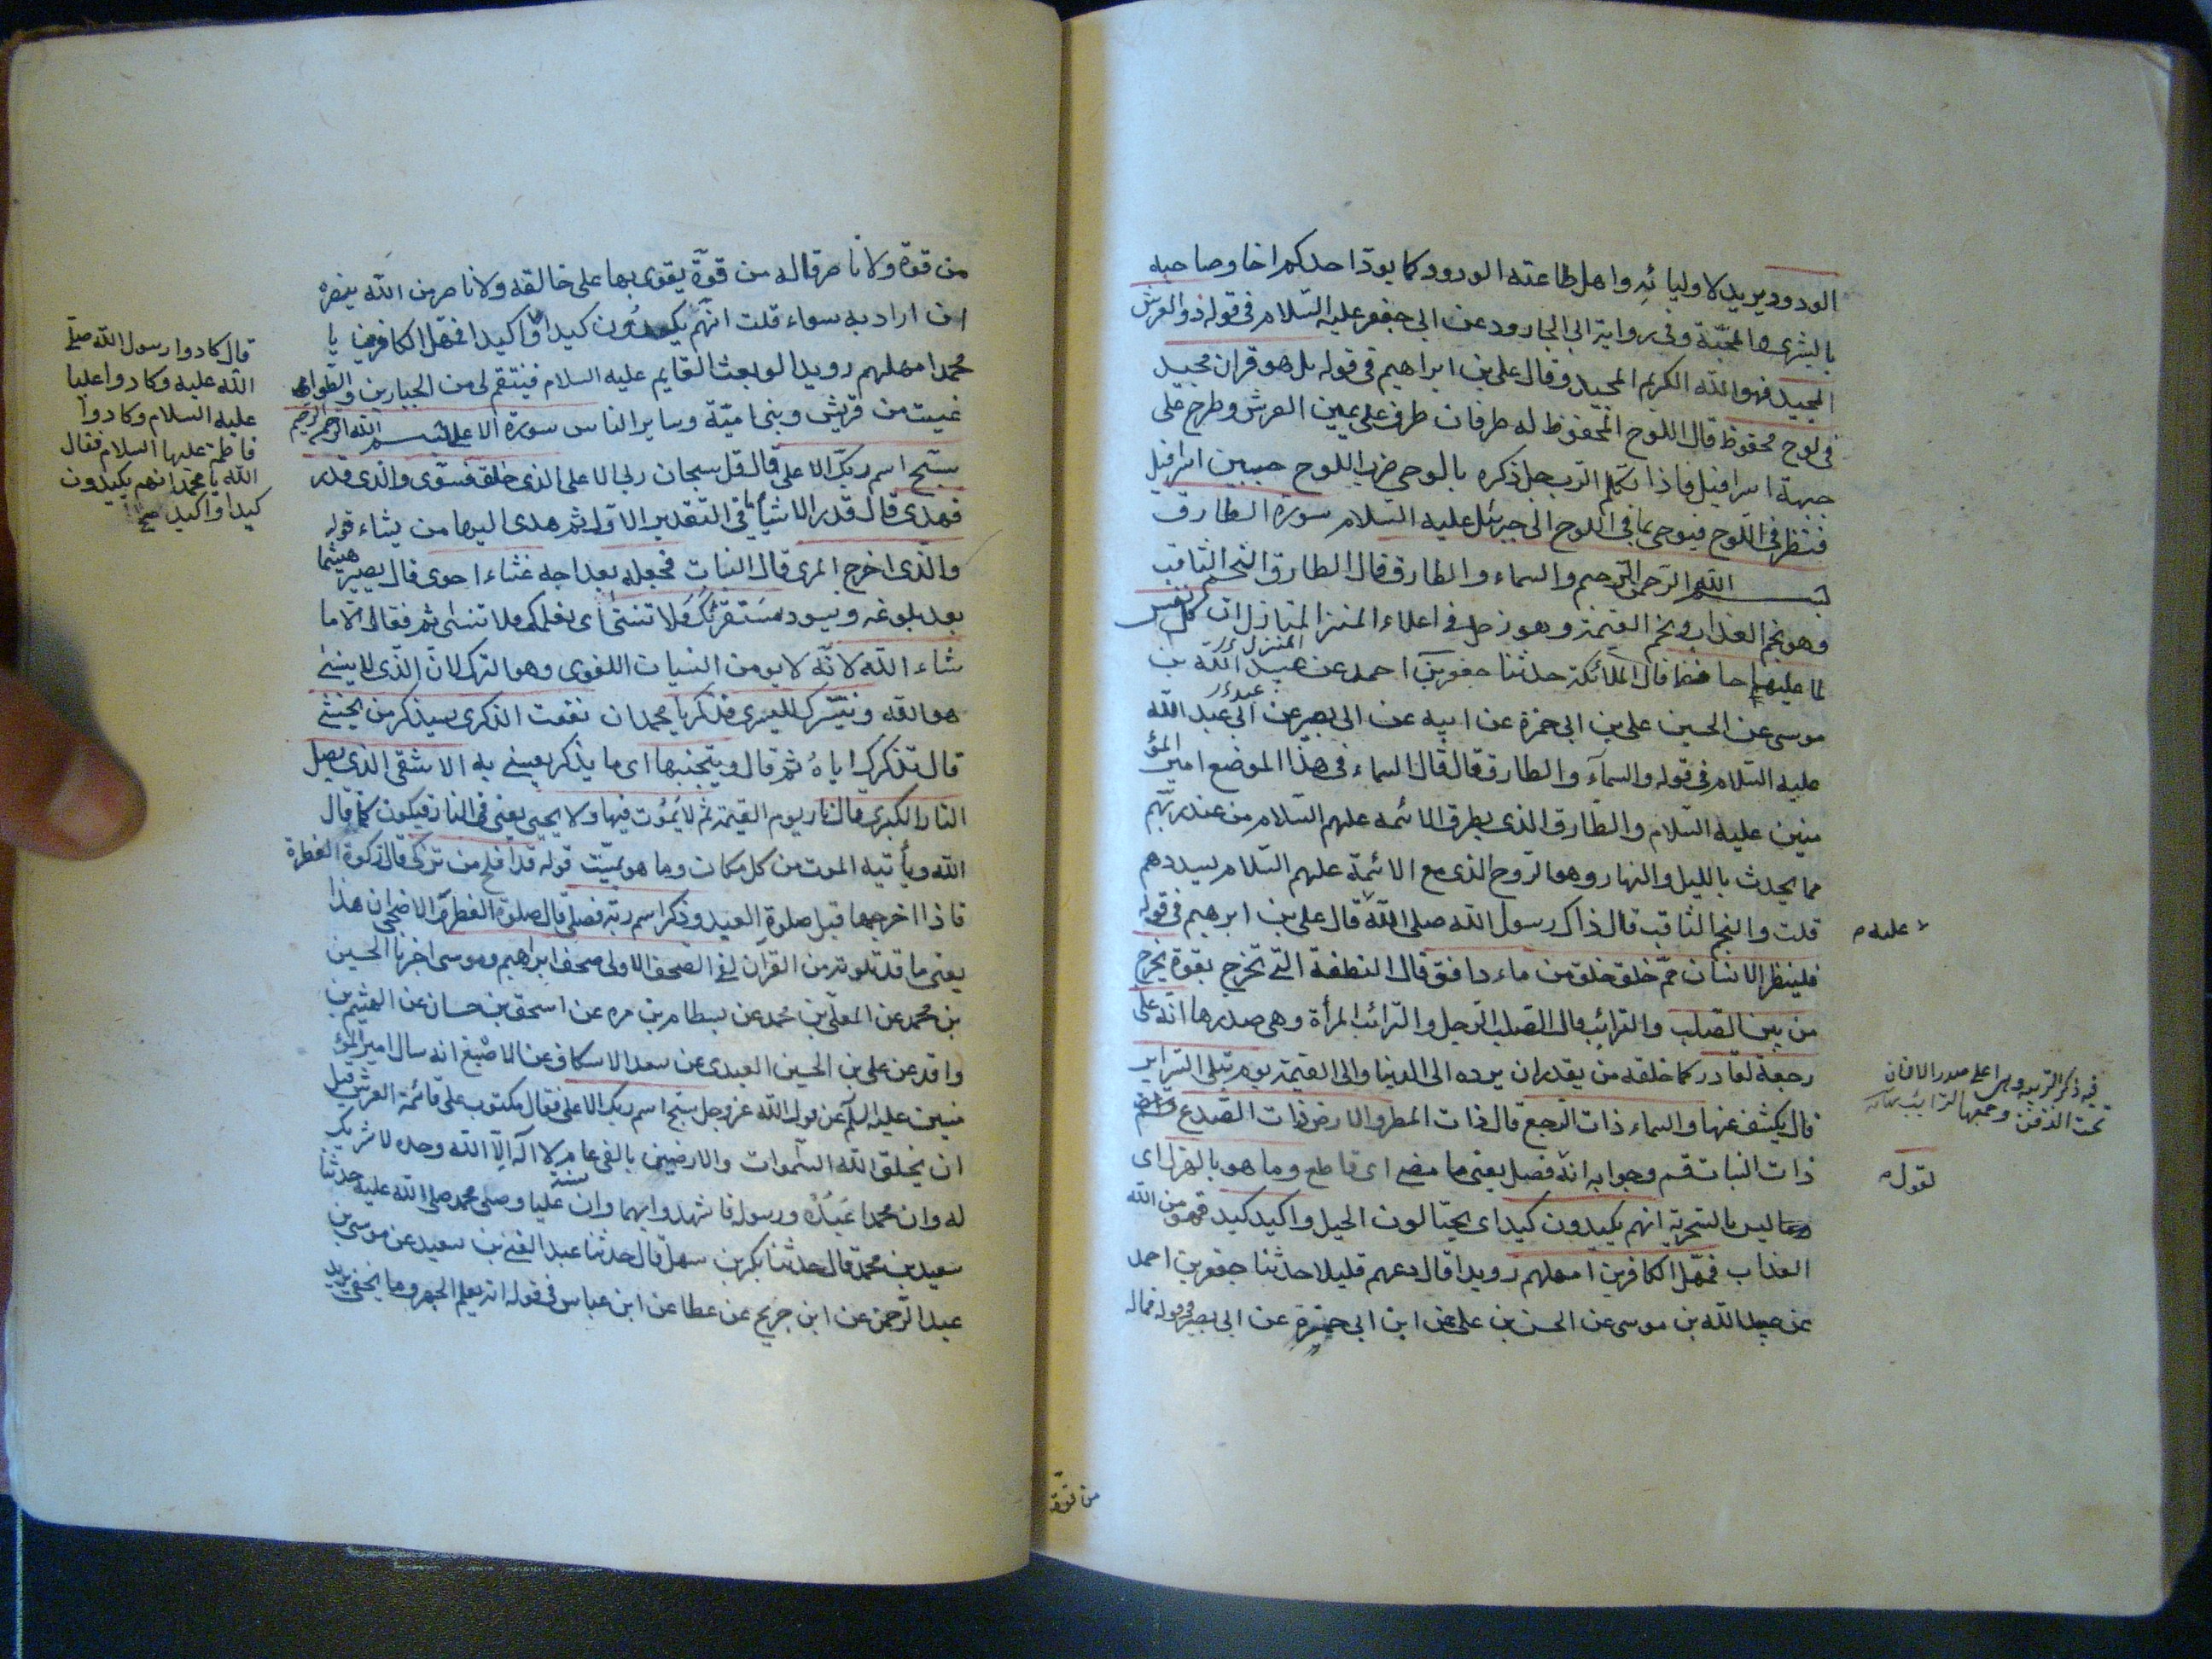 الودود يريد لاوليائه واهل طاعته الودود كما يود احدكم اخا وصاحبه
بالبشرى والمحبّة وفى رواية ابى الجارود عن ابى جعفر عليه السّلام فى قوله ذو العرش
المجيد فهو الله الكريم المجيد وقال على بن ابراهيم فى قوله بل هو قران مجيد
فى لوح محفوظ قال اللوح المحفوظ له طرفان طرف على يمين العرش وطرح على
جبهة اسرافيل فاذا تكلم الرب جل ذكره بالوحى ضرب اللوح جبين اسرافيل
فنظر فى اللوح فيوحى بما فى اللوح الى جبرئيل عليه السلام سورة الطارق
بسم الله الرّحمن الرّحيم والسماء والطارق قال الطارق النجم الثاقب
وهو نجم العذاب ونجم القيمة وهو زحل فى اعلاء المنزل المنازل ان كل نفس
المنزل
لما عليها حافظ قال الملائكة حدثنا جعفر بن احمد عن عبيد الله بن
عبد
موسى عن الحسين على بن ابى حمزة عن ابيه عن ابى بصير عن ابى عبد الله
عليه السّلام فى قوله والسمآء والطارق قال قال السماء فى هذا الموضع امير المؤ
منين عليه السّلام والطّارق الذى يطرق الائمه عليهم السّلام من عند ربّهم
مما يحدث بالليل والنهار وهو الرّوح الذى مع الائمّة عليهم السّلام يسددهم
قلت والنجم الثاقب قال ذاك رسول الله صلى الله قال على بن ابرهيم فى قوله
عليه م
فلينظر الانسان ممّ خلق خلق من ماء دافق قال النطفة التى تخرج بقوة يخرج
من بين الصّلب والترائب قال الصّلب الرجل والترائب المرأة وهى صدرها انّه على
رجعة لقادر كما خلقه من يقدر ان يرده الى الدنيا والى القيمة يوم تبلى السّراير
قال يكشف عنها والسماء ذات الرّجع قال ذات المطر والارض ذات الصّدع
تحت الذقن وجمعها الترائب
ذات النبات قسم وجوابه انّه فصل يعنى ما مضى اى قاطع وما هو بالهزل اى
لقول
ليس بالسّخرية انهم يكيدون كيدا اى يحتالون الحيل واكيد كيد فهو من الله
العذاب فمهّل الكافرين امهلهم رويدا قال دعهم قليلا حدثنا جعفر بن احمد
عن عبيد الله بن موسى عن الحسن بن على عن ابن ابى حمزة عن ابى بصير فى قوله فماله
من قوة
من قوة ولا ناصر قال له من قوّة يقوى بها على خالقه ولا ناصر من الله ينصره
ان اراد به سواء قلت انّهم يكيدُون كيدا واكيد كيدا فمهل الكافرين يا
محمد امهلهم رويدا لو بعث القايم عليه السلام فينتقم لى من الجبارين والطّواغى
غيت من قريش وبنى اميّة وساير الناس سورة الاعلى بسم الله الرّحمن الرّحيم
قال كادوا رسول الله صلّى
الله عليه وكادوا عليا
عليه السلام وكادوا
فاطمة عليها السلام فقال
الله يا محمد انهم يكيدون
كيدا واكيد صح
سبّح اسم ربّك الاعلى قال قل سبحان ربى الاعلى الذى خلق فسوّى والذى قدر
فهدى قال قدر الاشيآء فى التقدير الاوّل ثم هدى اليها من يشاء قوله
والّذى اخرج المرعى قال النبات فجعله بعد اجه غثاء احوى قال يصير هشيما
بعد بلوغه ويسود سَنُقرئكَ فَلا تنسى اى نعلمك فلا تنسى ثم فقال الّا ما
شاء الله لانّه لا يو من النسيات اللغوى وهو الترك لانّ الّذى لا ينسى
هو الله ونيسّرك لليسرى فذكر يا محمد ان نفعت الذكرى سيذكر من يخشى
قال تذكرك اياهُ ثم قال ويتجنبها اى ما يذكر يعنى به الاشقى الذى يصلى
النار الكبرى قال نار يوم القيمة ثم لا يَمُوت فيها ولا يحيى يعنى فى النار فيكون كما قال
الله ويأتيه الموت من كل مكان وما هو بميّت قوله قد افلح من تزكى قال زكوة الفطرة
فاذا اخرجها قبل صلوة العيد وذكر اسم ربّه فصلى قال صلوة الفطر والاضحى ان هذا
يعنى ما قد تلوته من القرآن لفى الصّحف الاولى صحف ابراهيم وموسى اخبرنا الحسين
بن محمد عن المعلّى بن محمد عن بسطام بن مره عن اسحق بن حسان عن الهيثم بن
واقد عن على بن الحسين العبدى عن سعد الاسكاف عن الاصبغ انه سال امير المؤ
منين عليه السلم عن قول الله عزوجل سبح اسم ربك الاعلى فقال مكتوب على قائمة العرش قبل
ان يخلق الله السّموات والارضين بالفى عام لا اله الّا الله وحده لا شريك
سنة
له وان محمدا عَبْدُهُ ورسوله فاشهدوا بهما وان عليا وصى محمد صلى الله عليه حدثنا
سعيد بن محمد قال حدثنا بكر بن سهل قال حدثنا عبد الغنى بن سعيد عن موسى بن
عبد الرّحمن عن ابن جريح عن عطا عن ابن عباس فى قوله انه يعلم الجهر وما يخفى يريد